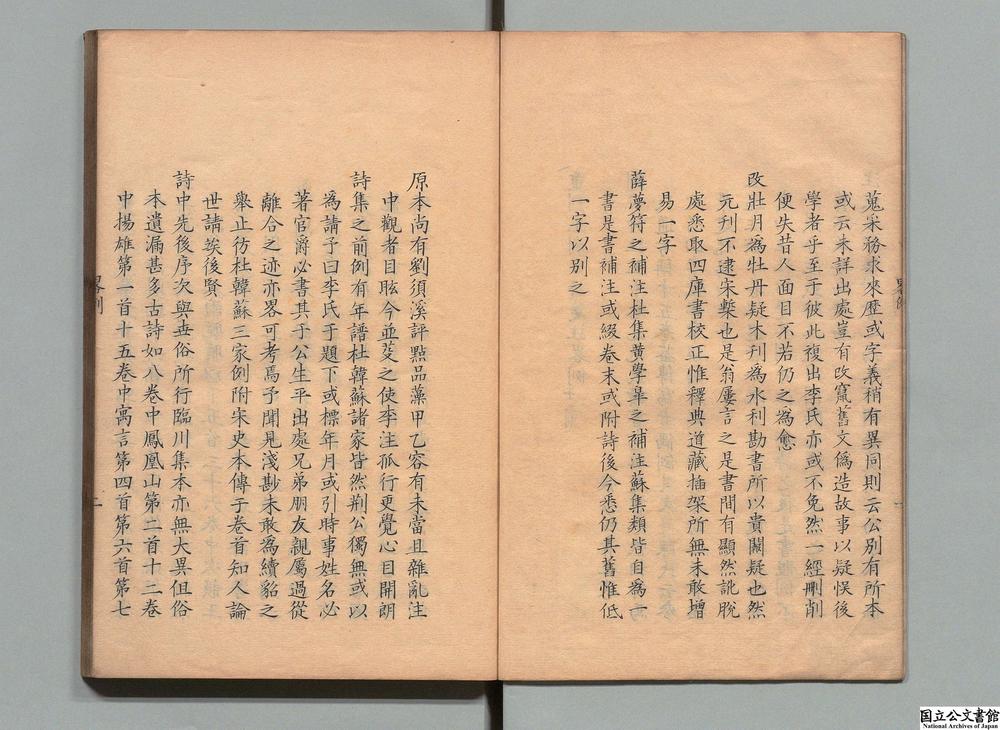 蒐采務求來歷或字義稍有異同則云公別有所本
或云未詳出處豈有改竄舊文僞造故事以疑悞後
學者乎至于彼此複出李氏亦或不免然一經刪削
便失昔人面目不若仍之為愈
改牡月為牡丹疑木刊為水利勘書所以貴闕疑也然
元刊不逮宋槧也是翁屢言之是書間有顯然訛脫
處悉取四庫書校正惟釋典道藏插架所無未敢增
易一字
薛夢符之補注杜集黃學皐之補注蘇集類皆自為一
書是書補注或綴卷末或附詩後今悉仍其舊惟低
一字以別之
原本尚有劉須溪評點品藻甲乙容有未當且雜亂注
中觀者目眩今並芟之使李注孤行更覺心目開朗
詩集之前例有年譜杜韓蘇諸家皆然荆公獨無或以
為請予曰李氏于題下或標年月或引時事姓名必
著官爵必書其于公生平出處兄弟朋友親屬過從
離合之迹亦畧可考焉予聞見淺尠未敢為續貂之
舉止彷杜韓蘇三家例附宋史本傳于卷首知人論
世請俟後賢
詩中先後序次與世俗所行臨川集本亦無大異但俗
本遺漏甚多古詩如八卷中鳳凰山第二首十二卷
中揚雄第一首十五卷中寓言第四首第六首第七
畧例
一
畧例
二
国立公文書館
National Archives of Japan